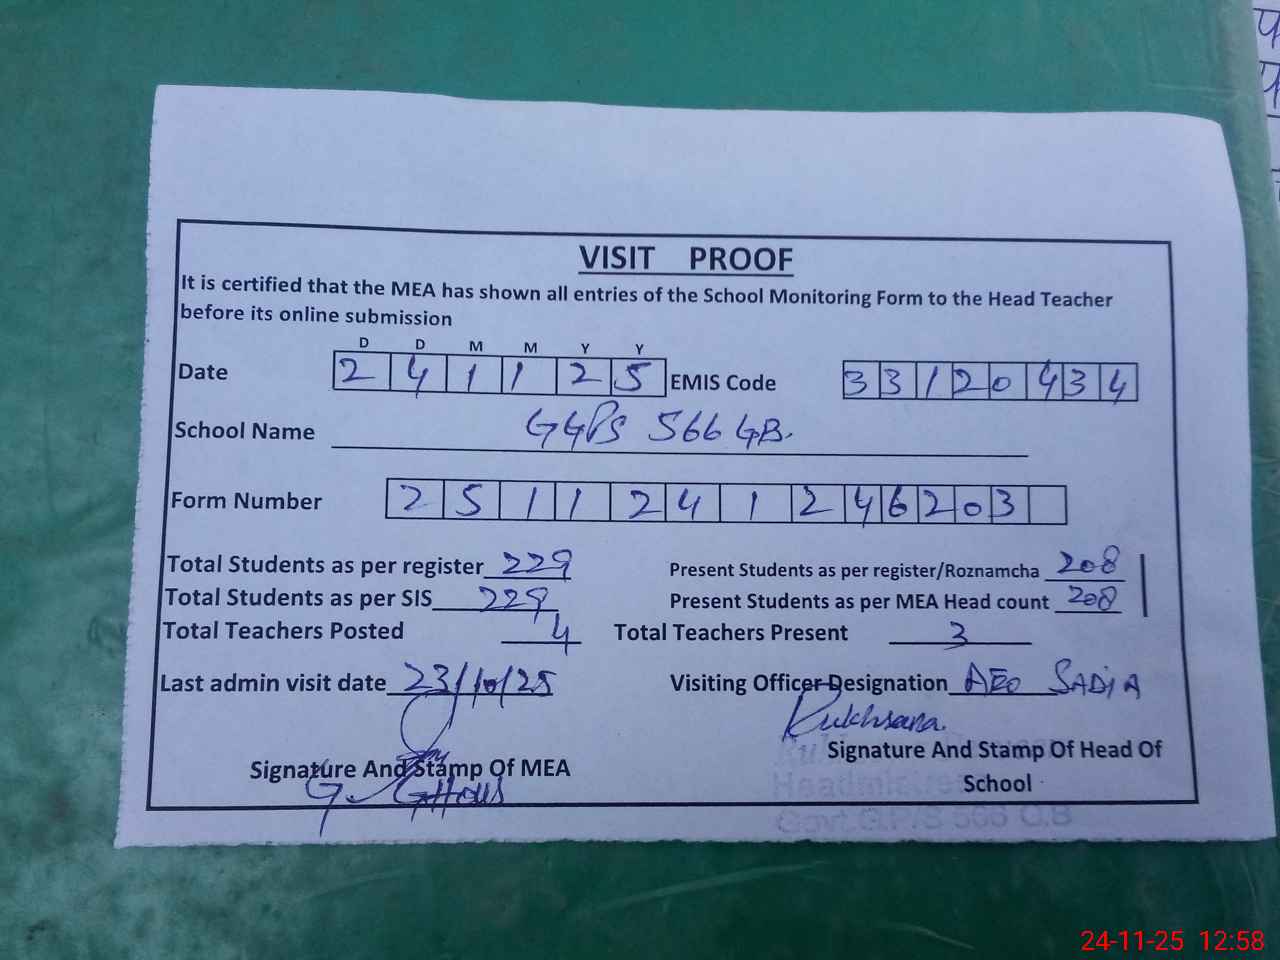 VISIT PROOF
It is certified that the MEA has shown all entries of the School Monitoring Form to the Head Teacher
before its online submission
D D M M Y Y
Date 2 4 1 1 2 5 EMIS Code 3 3 1 2 0 4 3 4
School Name GGPS 566 GB.
Form Number 2 5 1 1 2 4 1 2 4 6 2 0 3
Total Students as per register 229 Present Students as per register/Roznamcha 208
Total Students as per SIS 229 Present Students as per MEA Head count 208
Total Teachers Posted 4 Total Teachers Present 3
Last admin visit date 23/10/25 Visiting Officer Designation AEO SADIA
Rukhsana.
Signature And Stamp Of MEA Signature And Stamp Of Head Of
School
G. GHous
Govt.G.P/S 566 G.B
24-11-25 12:58